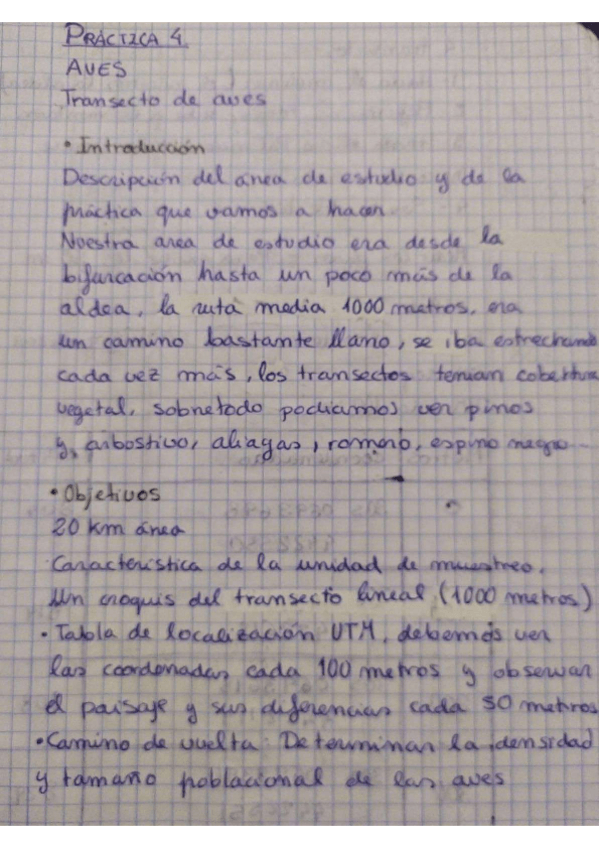 PRÁCTICA 4
AVES
Transecto de aves
• Introducción
Descripción del área de estudio y de la
práctica que vamos a hacer
Nuestra area de estudio era desde la
bifurcación hasta un poco más de la
aldea, la ruta media 1000 metros, era
un camino bastante llano, se iba estrechando
cada vez más, los transectos tenian cobertura
vegetal, sobretodo podiamos ver pinos
y, arbostivo, aliagas, romero, espino negro...
• Objetivos
20 km área
Característica de la unidad de muestreo.
Un croquis del transecto lineal, (1000 metros)
• Tabla de localización UTM, debemos ver
las coordenadas cada 100 metros y observar
el paisaje y sus diferencias cada 50 metros
• Camino de vuelta: Determinar la densidad
y tamaño poblacional de las aves